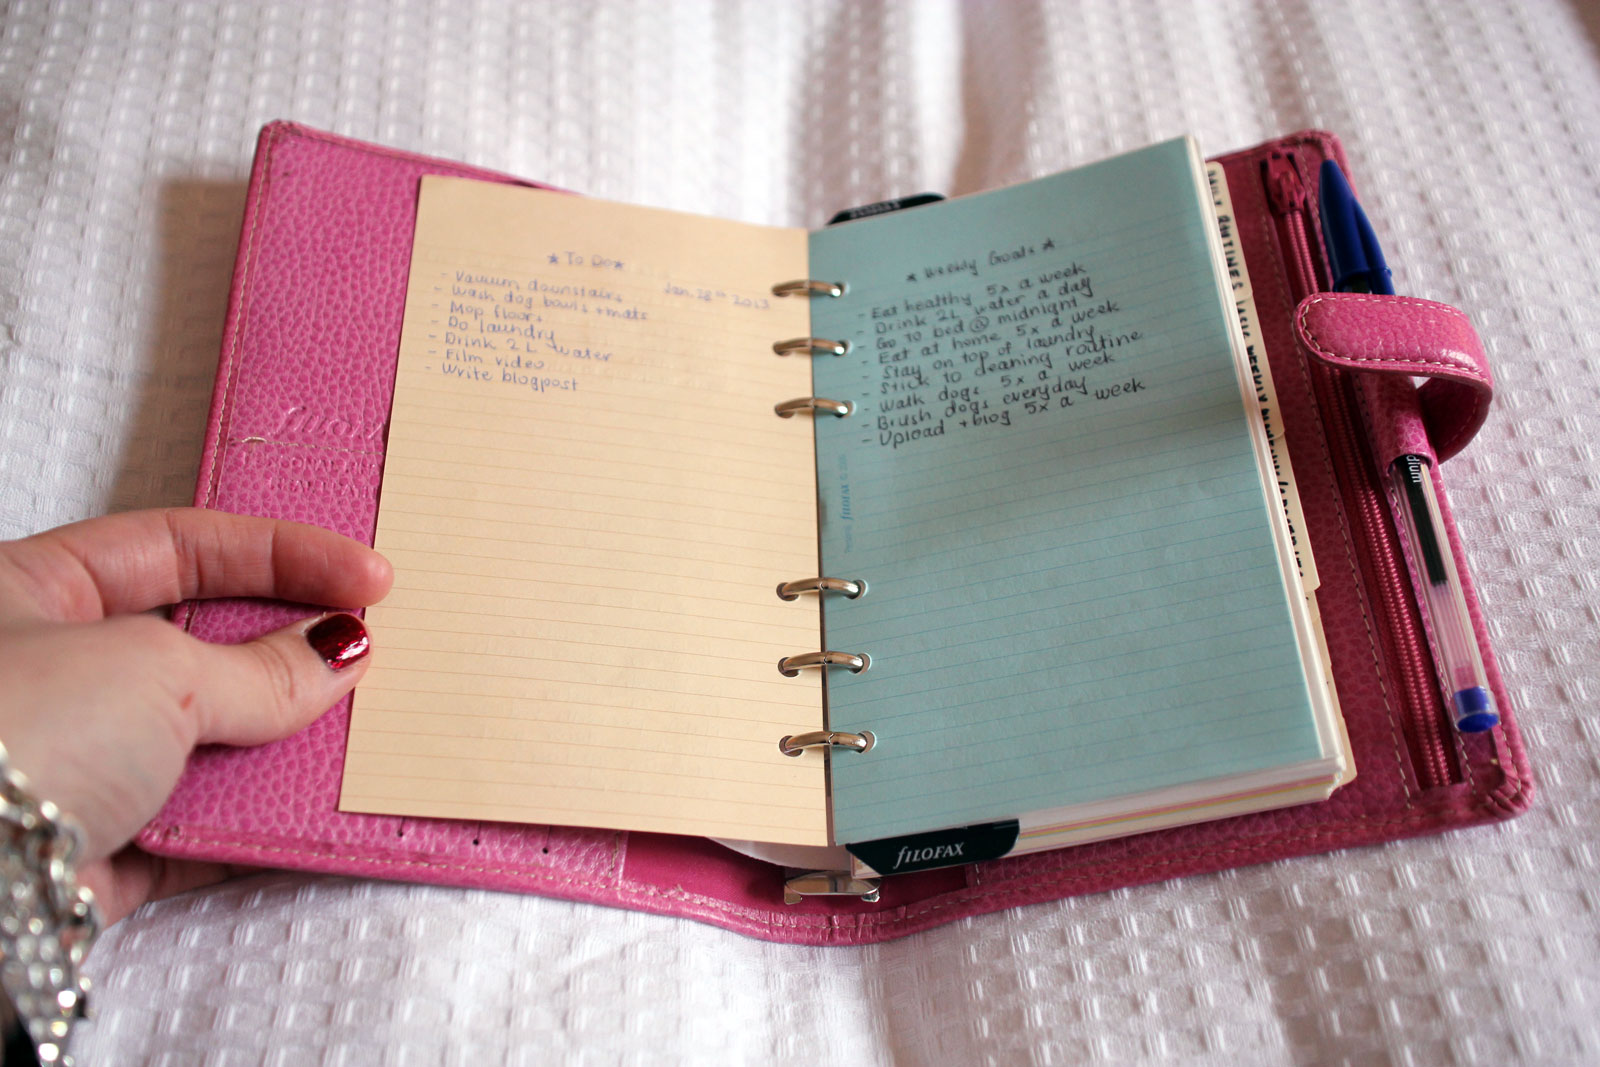 ★ To Do ★
Jan. 28th 2013
- Vacuum downstairs
- Wash dog bowls + mats
- Mop floors
- Do laundry
- Drink 2 L water
- Film video
- Write blogpost
★ Weekly Goals ★
- Eat healthy 5x a week
- Drink 2L water a day
- Go to bed @ midnight
- Eat at home 5x a week
- Stay on top of laundry
- Stick to cleaning routine
- Walk dogs 5x a week
- Brush dogs everyday
- Upload + blog 5x a week
fILOFAX
fILOFAX